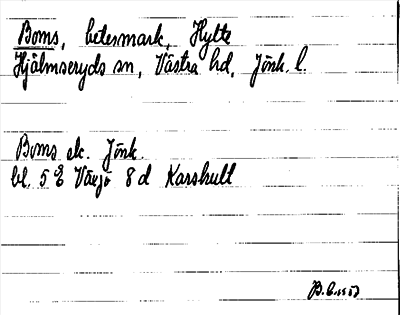 Boms, betesmark, Hylte
Hjälmseryds sn, Västra hd, Jönk. l.
Boms ek. Jönk.
bl. 5 E Växjö 8 d Karshult